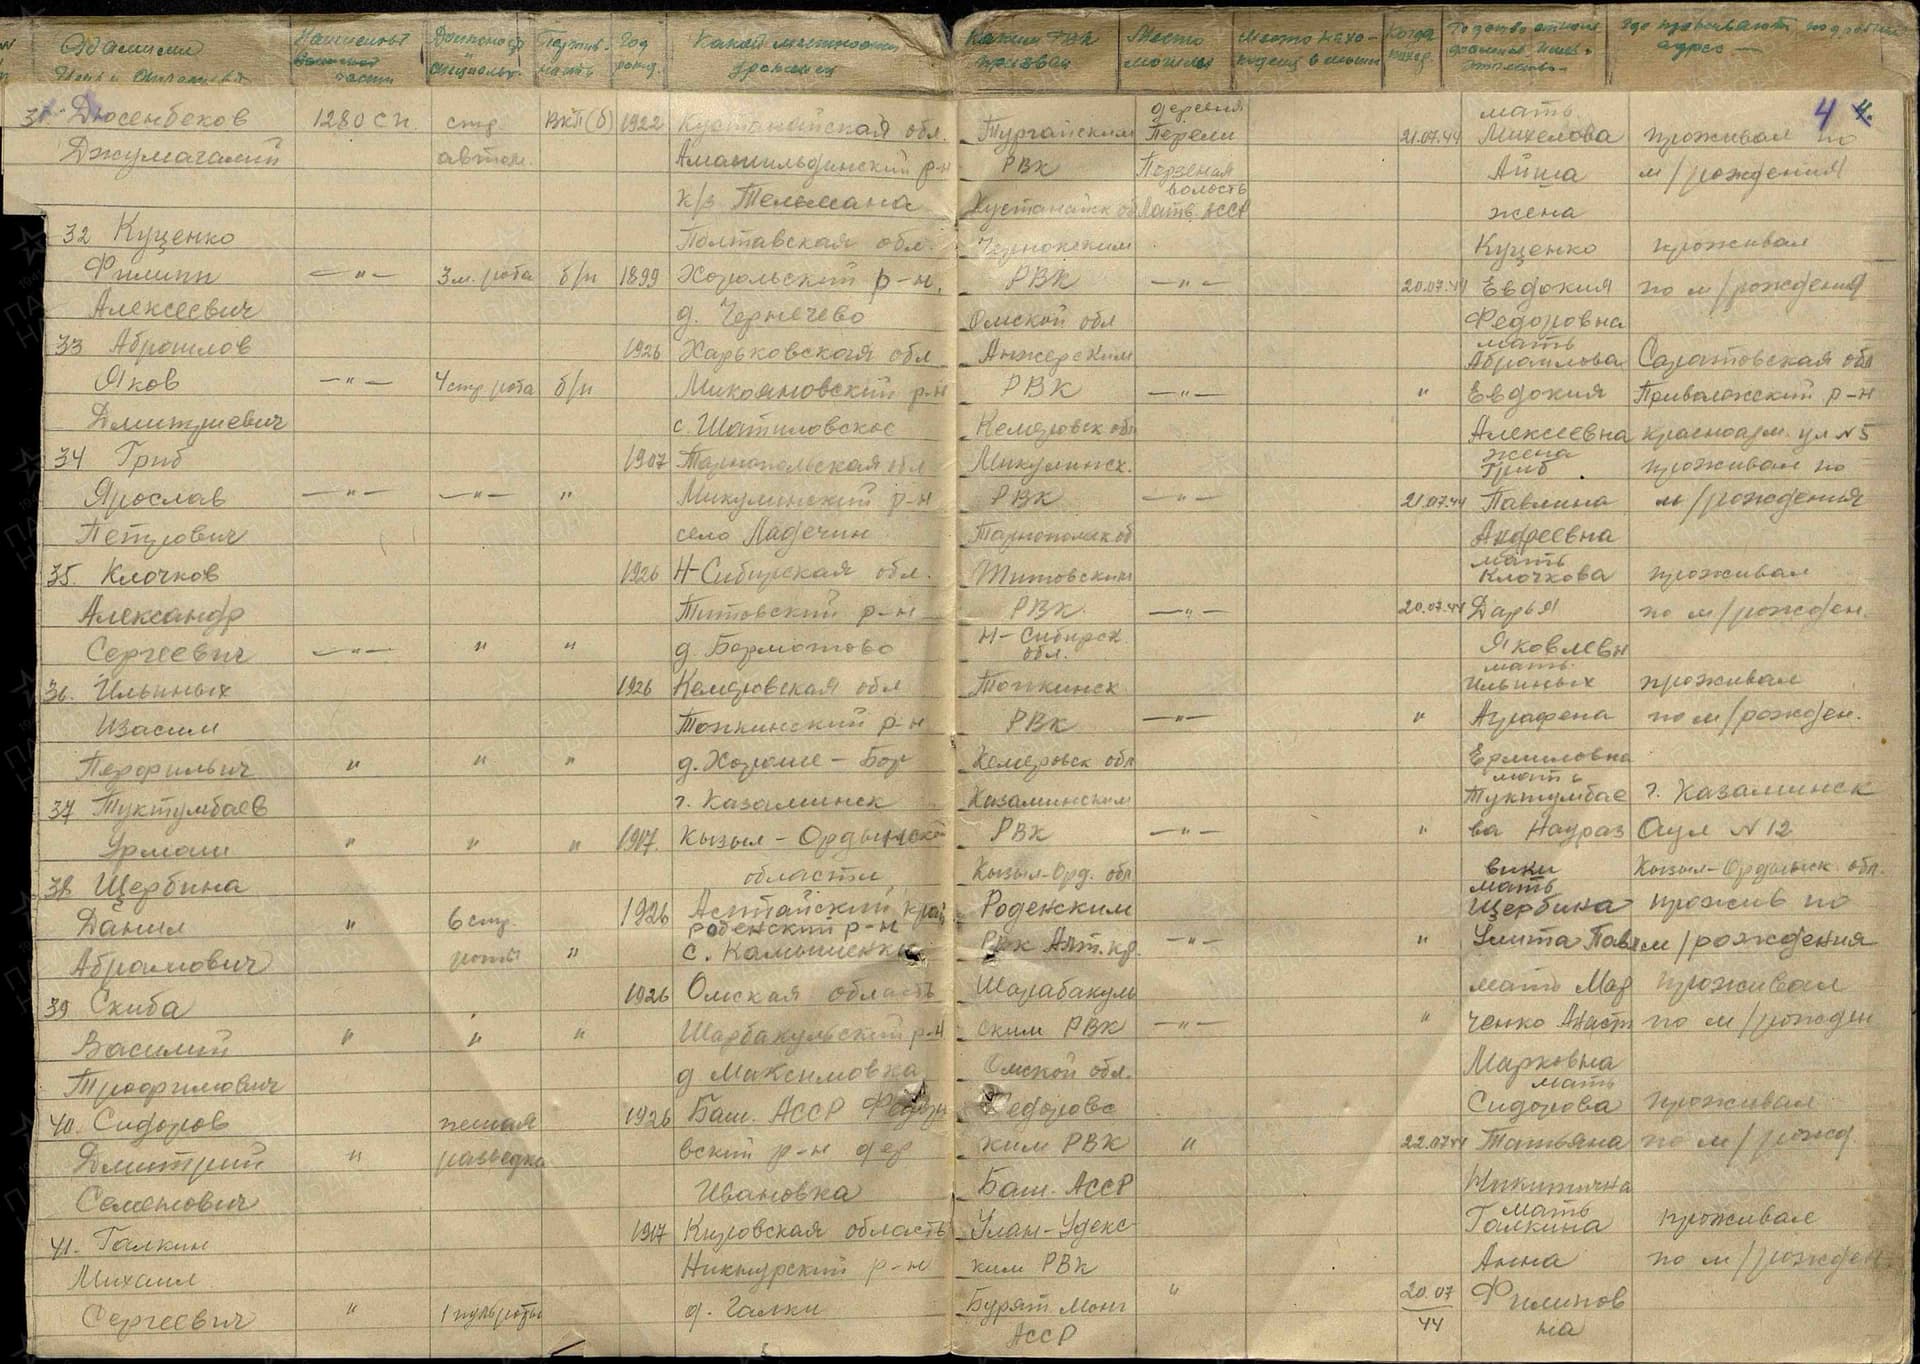 Фамилия Имя и Отчество
Наименов. части
Должность специальн.
Партийность
Год рожд.
Какой местности уроженец
Каким РВК призван
Место могилы
Когда
Где проживают, подробный адрес
4
31. Дюсенбеков 1280 сп. стр. ВКП(б) 1922 Кустанайская обл. Тургайским деревня Перели 21.07.44 мать Михелова проживал по
Джумагалий автом. Амангильдинский р-н РВК волость Айша м/рождения
к/з Тельмана Кустанайск об Латв. АССР жена
32 Куценко Полтавская обл. Куценко проживал
Филипп —"— 3 м. рота б/п 1899 Хорольский р-н. РВК —"— 20.07.44 Евдокия по м/рождения
Алексеевич д. Чернечево Омской обл Федоровна
33 Аброшлов 1926 Харьковская обл Анжерским мать Аброшлова Саратовская обл
Яков —"— 4 стр рота б/п Микояновский р-н РВК —"— " Евдокия Приволжский р-н
Дмитриевич с. Шатиловское Кемеровск обл Алексеевна красноарм. ул N 5
34 Гриб 1907 Тарнопольская обл Микулинск. жена Гриб проживал по
Ярослав —"— —"— " Микулинский р-н РВК —"— 21.07.44 Павлина м/рождения
Петрович село Ладечин Тарнопольск об Андреевна
35. Клочков 1926 Н-Сибирская обл. Титовским мать Клочкова проживал
Александр Титовский р-н РВК. —"— 20.07.44 Дарья по м/рожден.
Сергеевич —"— " " д. Бормотово Н-Сибирск. обл. Яковлевн
36. Ильиных 1926 Кемеровская обл Топкинск. мать Ильиных проживал
Изасим Топкинский р-н РВК —"— " Аграфена по м/рожден.
Перфильич " " " д. Хороше-Бор Кемеровск обл Ермиловна
37 Туктумбаев г. Казалинск Казалинским мать Туктумбае г. Казалинск
Урмаш " " " 1917. Кызыл-Ординской РВК —"— " ва Наураз Аул N 12
области Кызыл-Орд. обл вики Кызыл-Ординск. обл.
38 Щербина мать Щербина прожив по
Данил " 6 стр. 1926 Алтайский край Роденским Улита Пав м/рождения
Роденский р-н
Абрамович роты " с. Камышенка РВК Алт. кр. —"— "
39 Скиба 1926 Омская область Шарабакуль мать Мар проживал
Василий " " " Шарбакульский р-н ским РВК —"— " ченко Анаст по м/рожден
Трофимович д Максимовка Омской обл. Марковна
40. Сидоров пешая 1926 Баш. АССР Федоро Федоровс мать Сидорова проживал
Дмитрий " разведка вский р-н дер ким РВК " 22.07.44 Татьяна по м/рожд.
Семенович Ивановка Баш. АССР Никитична
41. Галкин 1917 Кировская область Улан-Удекс мать Галкина проживал
Михаил р-н ким РВК Анна по м/рожден.
Сергеевич " 1 пульроты д. Галки Бурят. Монг " 20.07 44 Филипов
АССР на